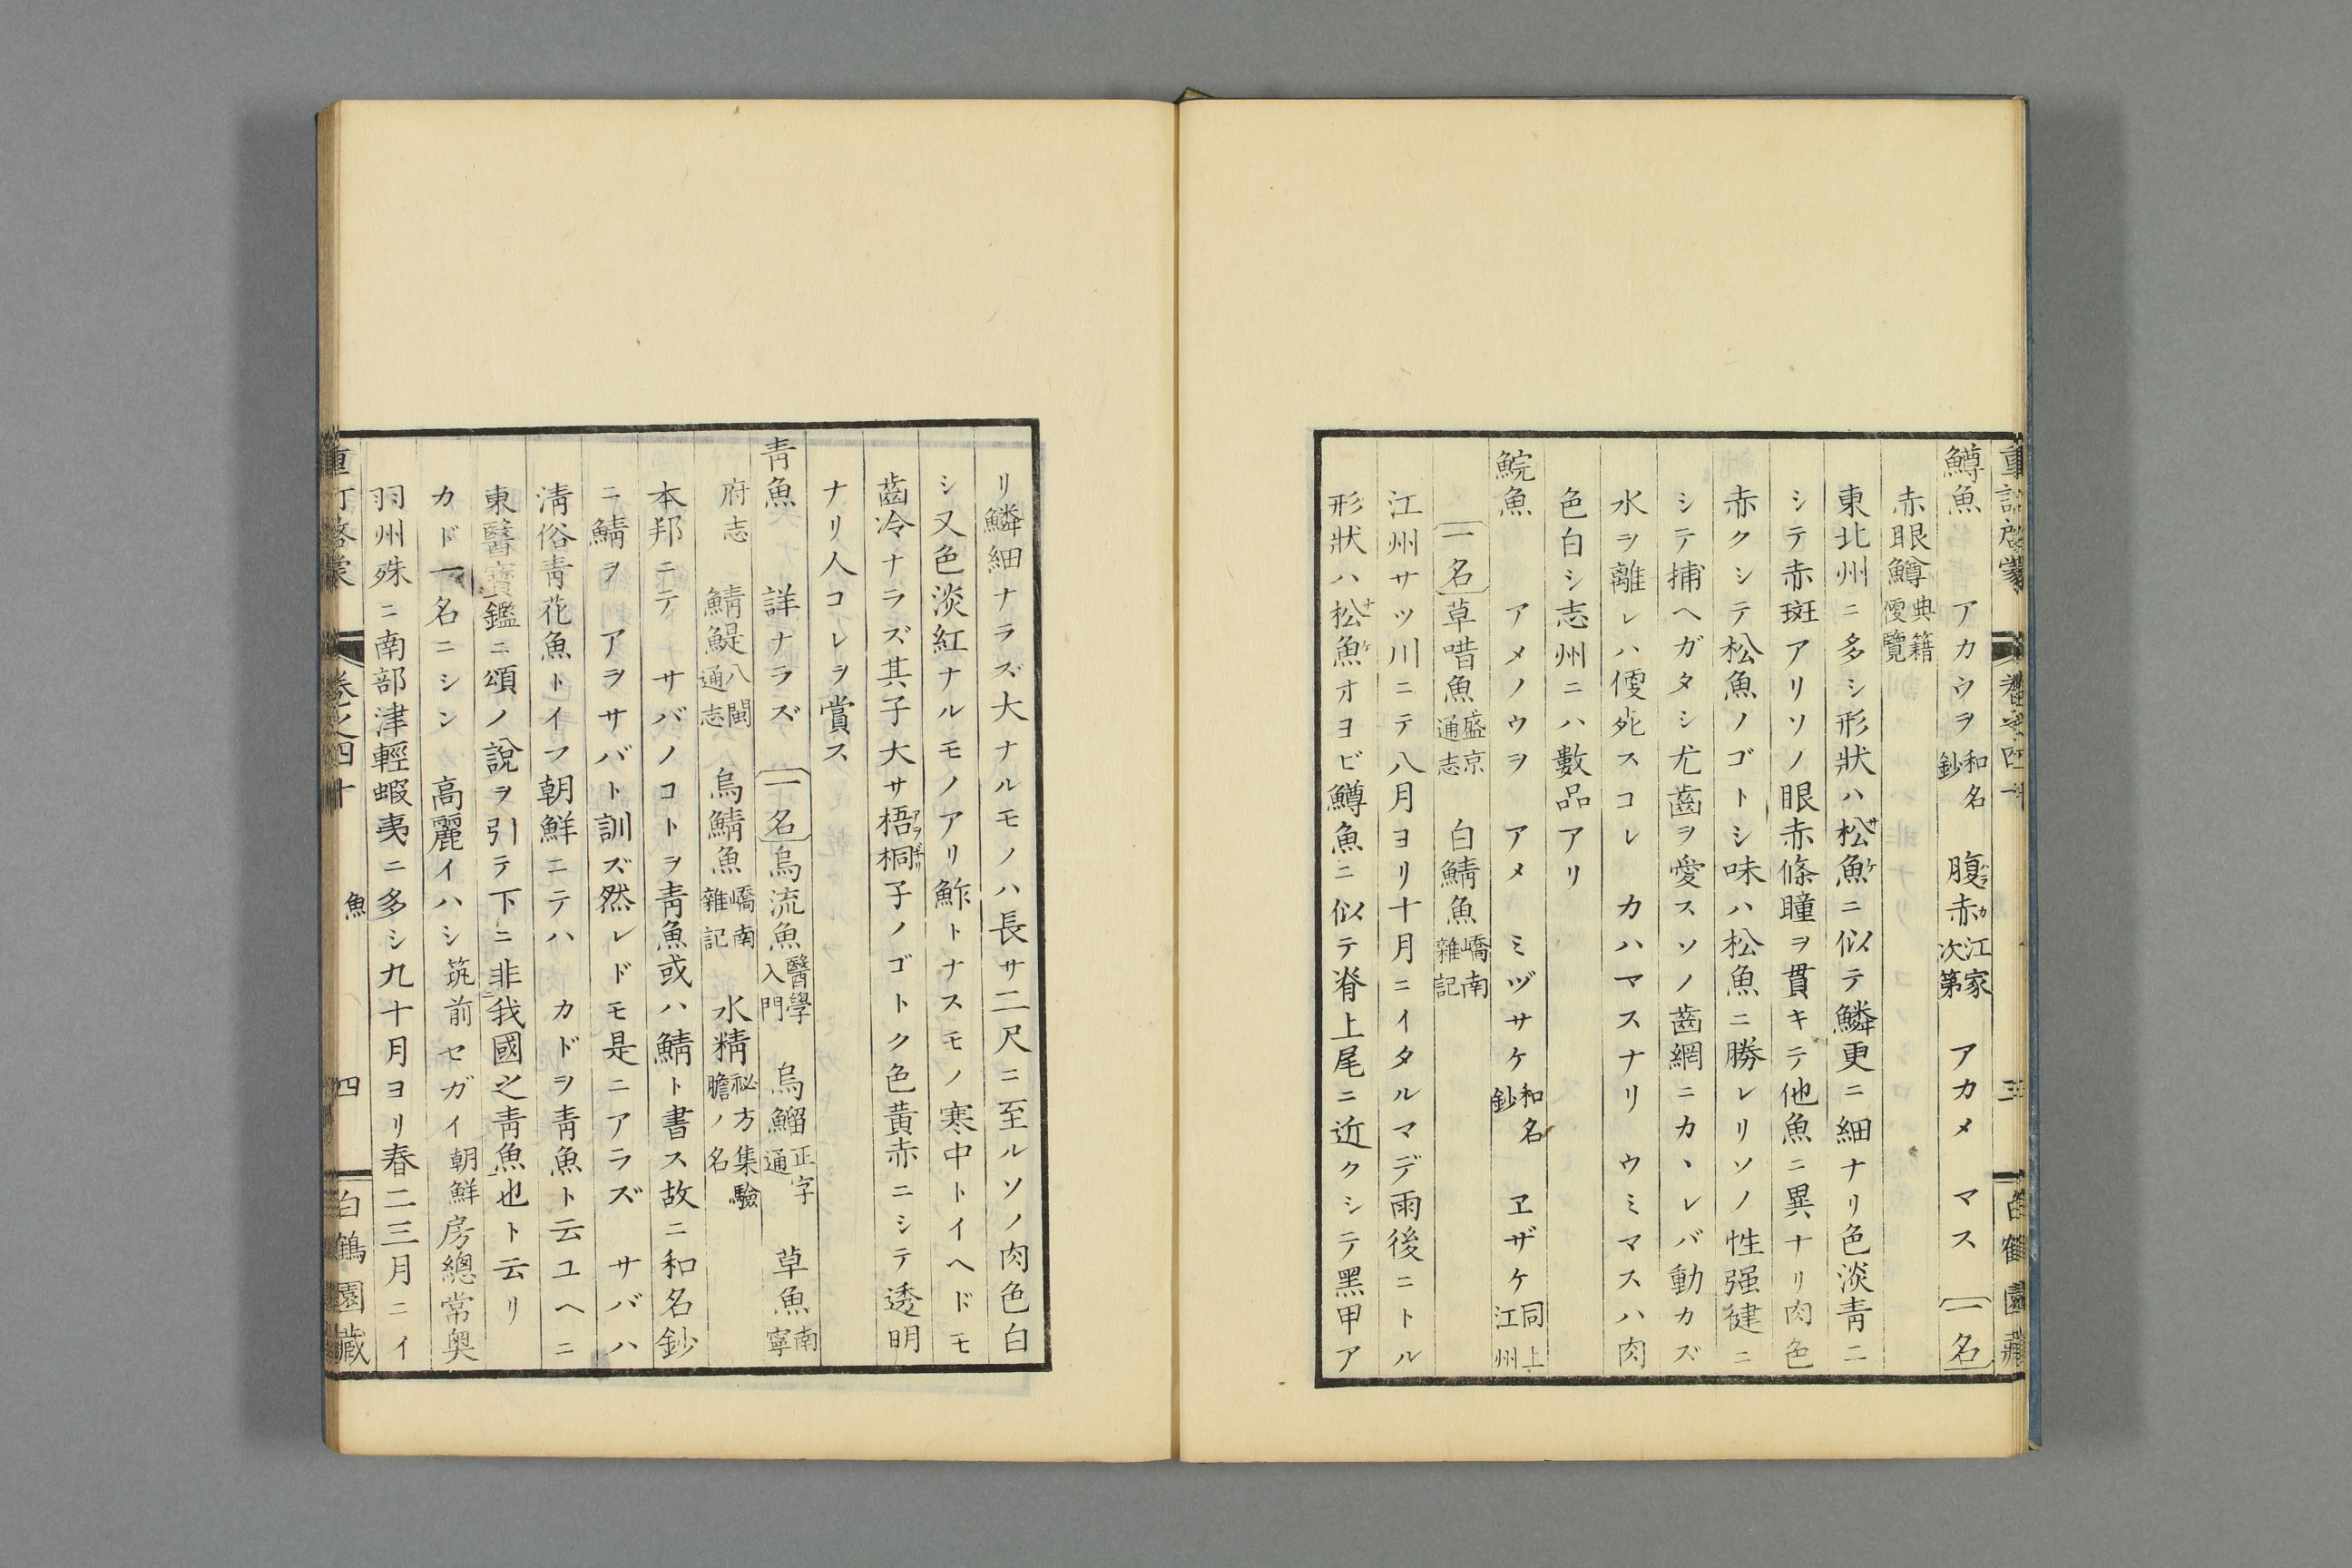 重訂啓蒙 卷之四十 三 白鶴園藏
鱒魚 アカウヲ 和名鈔 腹赤 江家次第 アカメ マス 〔一名〕
赤眼鱒 典籍便覽
東北州ニ多シ形狀ハ松魚ニ似テ鱗更ニ細ナリ色淡青ニ
シテ赤斑アリソノ眼赤條瞳ヲ貫キテ他魚ニ異ナリ肉色
赤クシテ松魚ノゴトシ味ハ松魚ニ勝レリソノ性强健ニ
シテ捕ヘガタシ尤齒ヲ愛スソノ齒網ニカヽレバ動カズ
水ヲ離レハ便死スコレ カハマスナリ ウミマスハ肉
色白シ志州ニハ數品アリ
鯇魚 アメノウヲ アメ ミヅサケ 和名鈔 ヱザケ 同上江州
〔一名〕草唶魚 盛京通志 白鯖魚 嶠南雜記
江州サツ川ニテ八月ヨリ十月ニイタルマデ雨後ニトル
形狀ハ松魚オヨビ鱒魚ニ似テ脊上尾ニ近クシテ黑甲ア
リ鱗細ナラズ大ナルモノハ長サ二尺ニ至ルソノ肉色白
シ又色淡紅ナルモノアリ鮓トナスモノ寒中トイヘドモ
齒冷ナラズ其子大サ梧桐子ノゴトク色黃赤ニシテ透明
ナリ人コレヲ賞ス
靑魚 詳ナラズ 〔一名〕烏流魚 醫學入門 烏鰡 正字通 草魚 南寧
府志 鯖鯷 八閩通志 烏鯖魚 嶠南雜記 水精 祕方集驗膽ノ名
本邦ニテ サバノコトヲ靑魚或ハ鯖ト書ス故ニ和名鈔
ニ鯖ヲ アヲサバト訓ズ然レドモ是ニアラズ サバハ
淸俗靑花魚トイフ朝鮮ニテハ カドヲ靑魚ト云ユヘニ
東醫寶鑑ニ頌ノ說ヲ引テ下ニ非我國之靑魚也ト云リ
カド一名ニシン 高麗イハシ 筑前 セガイ 朝鮮 房總常奥
羽州殊ニ南部津輕蝦夷ニ多シ九十月ヨリ春二三月ニイ
重訂啓蒙 卷之四十 魚 四 白鶴園藏